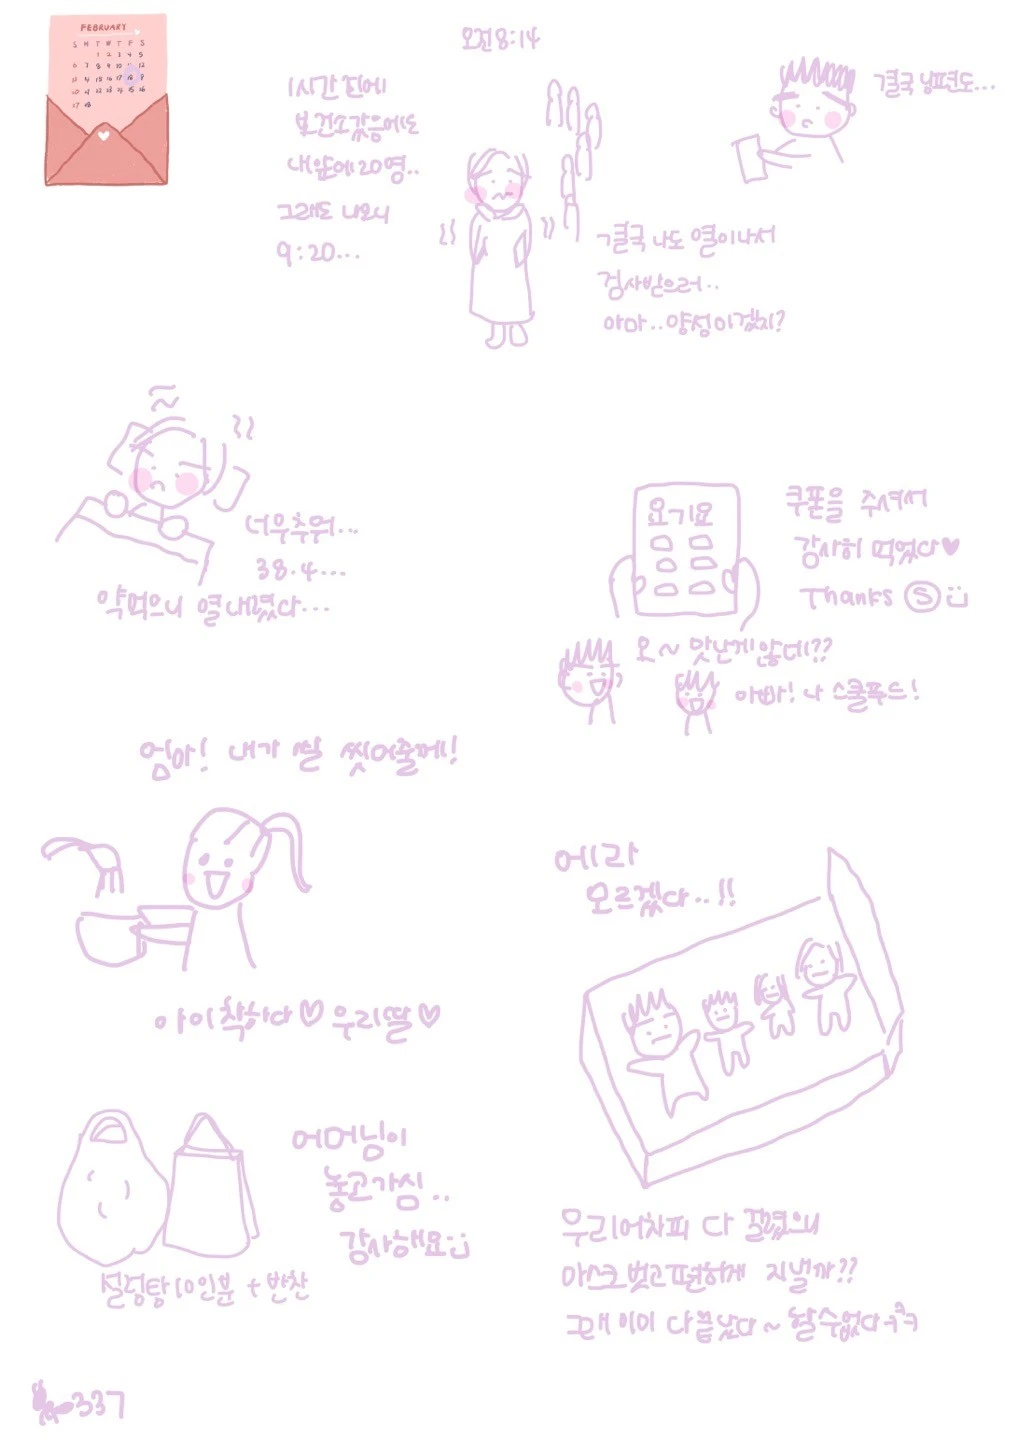 FEBRUARY
S M T W T F S
오전 8:14
1시간 전에
보건소갔음에도
내앞에 20명..
그래도 나오니
9:20...
결국 남편도...
결국 나도 열이나서
검사받으러..
아마.. 양성이겠지?
너무추워...
38.4...
약먹으니 열내렸다...
요기요
쿠폰을 주셔서
감사히 먹었다♥
Thanks Ⓢ
오~ 맛난게많네??
아빠! 나 스쿨푸드!
엄마! 내가 쌀 씻어줄께!
아이착하다♡우리딸♡
에라
모르겠다..!!
어머님이
놓고가심..
감사해요
설렁탕10인분 + 반찬
우리어차피 다 걸렸으니
마스크벗고편하게 지낼까??
그래 이미 다 끝났다~ 할수없다ㅋㅋ
337